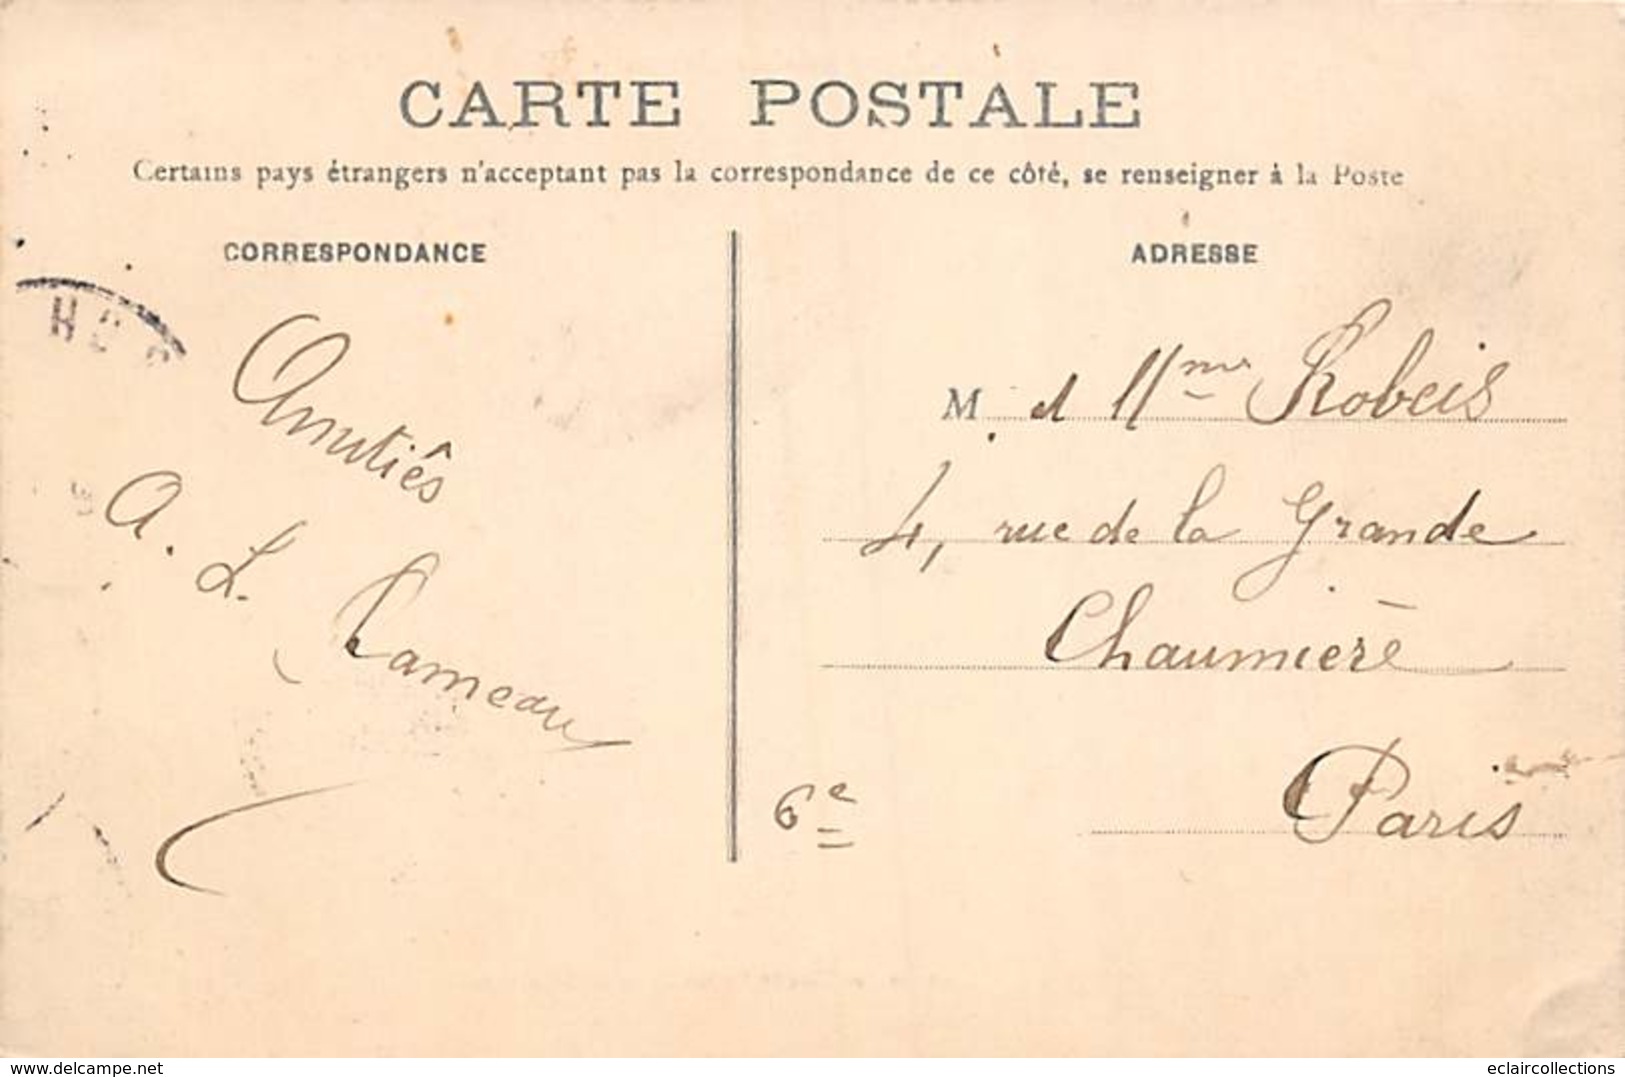 CARTE POSTALE
Certains pays étrangers n'acceptant pas la correspondance de ce côté, se renseigner à la Poste
CORRESPONDANCE
ADRESSE
Amitiés
A. L. Lameau
M
Mme
4, rue de la Grande
Chaumière
6e
Paris
www.delcampe.net
eclaircollections